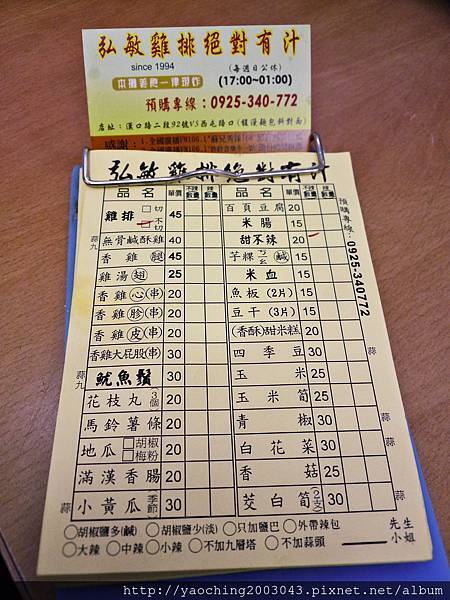 弘敏雞排絕對有汁
since 1994
(每週日公休)
本攤美色一律現炸
(17:00~01:00)
預購專線:0925-340-772
店址:漢口路二段92號VS西屯路口
感謝:
弘敏雞排絕對有汁
品名 單價 不辣數量 辣數量 品名 單價 不辣數量 辣數量
雞排 □切 □不切 45
百頁豆腐 20
米腸 15
蒜九 無骨鹹酥雞 40
甜不辣 20
香雞腿 45
芋粿ㄍㄠ(鹹) 15
雞湯翅 25
米血 15
香雞心(串) 20
魚板(2片) 15
香雞胗(串) 20
豆干(3片) 15
香雞皮(串) 20
(香酥)甜米糕 20
香雞大屁股(串) 20
四季豆 30 蒜
蒜九 魷魚鬚 30
玉米 25
花枝丸 3個 20
玉米筍 25
馬鈴薯條 20
青椒 30 蒜
地瓜 □胡椒 □梅粉 20
白花菜 30 蒜
滿漢香腸 20
香菇 25
蒜 小黃瓜 季節 30
茭白筍(2支) 30 蒜
預購專線:0925-340772
○胡椒鹽多(鹹) ○胡椒鹽少(淡) ○只加鹽巴 ○外帶辣包
○大辣 ○中辣 ○小辣 ○不加九層塔 ○不加蒜頭
先生
小姐
http://yaoching2003043.pixnet.net/album